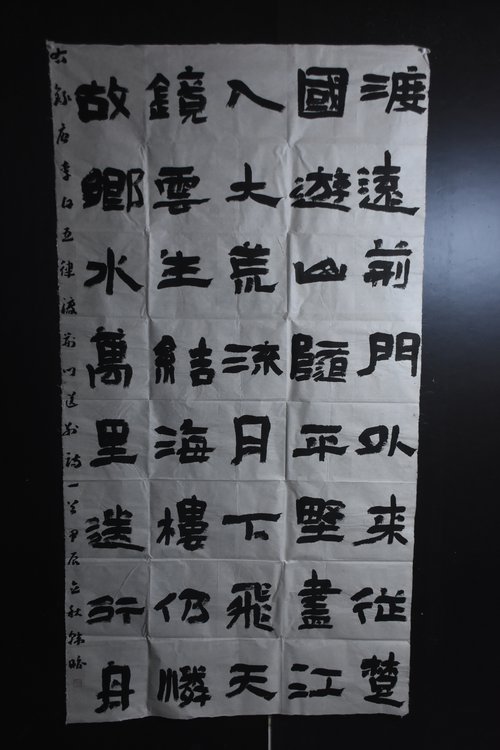 渡遠荊門外来從楚
國遊山隨平墅盡江
入大荒流月下飛天
鏡雲生結海樓仍憐
故鄉水萬里送行舟
右錄唐李白五律渡荊門送別詩一首甲辰立秋